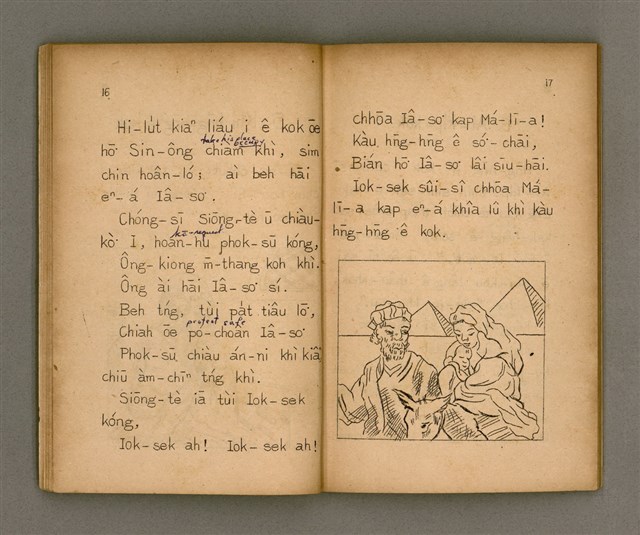 16
Hi-lu̍t kiaⁿ liáu i ê kok ōe
take his place
occupy
hō͘ Sin-ông chiàm khì, sim
chin hoân-ló; ài beh hāi
eⁿ-á Iâ-so͘.
Chóng-sī Siōng-tè ū chiàu-
re-request
kò͘ I, hoan-hù phok-sū kóng,
Ông-kiong m̄-thang koh khì.
Ông ài hāi Iâ-so͘ sí.
Beh tńg, tùi pa̍t tiâu lō͘,
protect safe
Chiah ōe pó-choân Iâ-so͘
Phok-sū chiàu án-ni khì kiâⁿ
chiū àm-chīⁿ tńg khì.
Siōng-tè iā tùi Iok-sek
kóng,
Iok-sek ah! Iok-sek ah!
17
chhōa Iâ-so͘ kap Má-lī-a!
Kàu hn̄g-hn̄g ê só͘-chāi,
Bián hō͘ Iâ-so͘ lâi siū-hāi.
Iok-sek sûi-sî chhōa Má-
lī-a kap eⁿ-á khîa lû khì kàu
hn̄g-hn̄g ê kok.